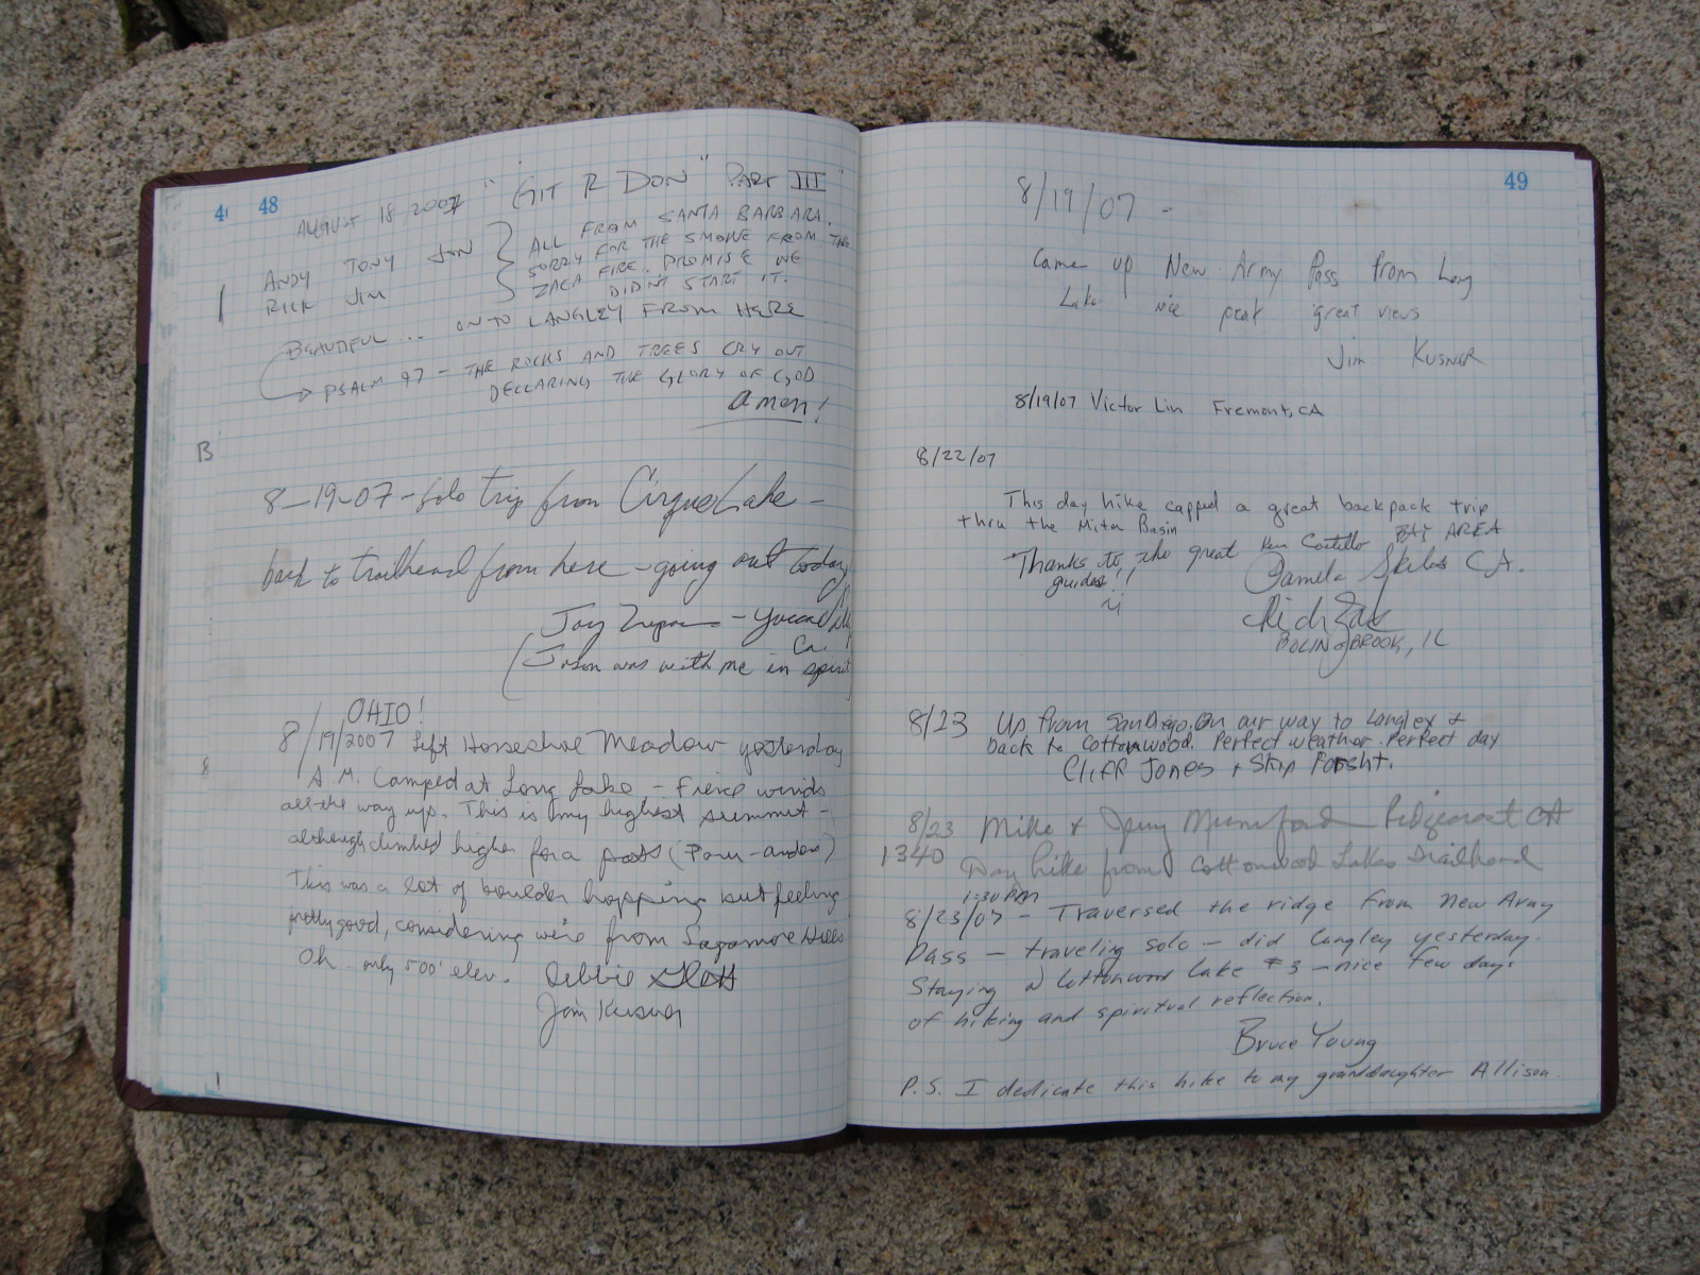 48
AUGUST 18 2007 "GIT R DON" PART III
ANDY TONY JON } ALL FROM SANTA BARBARA.
RICK JIM SORRY FOR THE SMOKE FROM THE
ZACA FIRE. PROMISE WE
DIDN'T START IT.
BEAUTIFUL ... ON TO LANGLEY FROM HERE
→ PSALM 97 - THE ROCKS AND TREES CRY OUT
DECLARING THE GLORY OF GOD
amen!
B
8-19-07 - Solo trip from Cirque Lake -
back to trailhead from here - going out today
Jay - Yucca
Ca.
(Jason was with me in spirit
OHIO!
8/19/2007 Left Horseshoe Meadow yesterday
A.M. Camped at Long Lake - Fierce winds
all the way up. This is my highest summit -
although climbed higher for a pass
This was a lot of boulder hopping but feeling
pretty good, considering we're from Sagamore Hills
Oh - only 500' elev. Debbie
Jim Kusner
49
8/19/07 -
Came up New Army Pass from Long
Lake nice peak great views
Jim Kusner
8/19/07 Victor Lin Fremont, CA
8/22/07
This day hike capped a great backpack trip
thru the Miter Basin
Thanks to the great Ken Costello BAY AREA
guides!! Pamela CA.
Rich
BOLINGBROOK, IL
8/23 Up from San Diego. On our way to Langley +
back to Cottonwood. Perfect weather. Perfect day
Cliff Jones + Skip Forsht.
8/23 Mike + Jenny Mumford Ridgecrest CA
1340 Day hike from Cottonwood Lakes Trailhead
1:30 PM
8/23/07 - Traversed the ridge from New Army
Pass - traveling solo - did Langley yesterday.
Staying @ Cottonwood Lake #3 - nice few days
of hiking and spiritual reflection.
Bruce Young
P.S. I dedicate this hike to my granddaughter Allison.